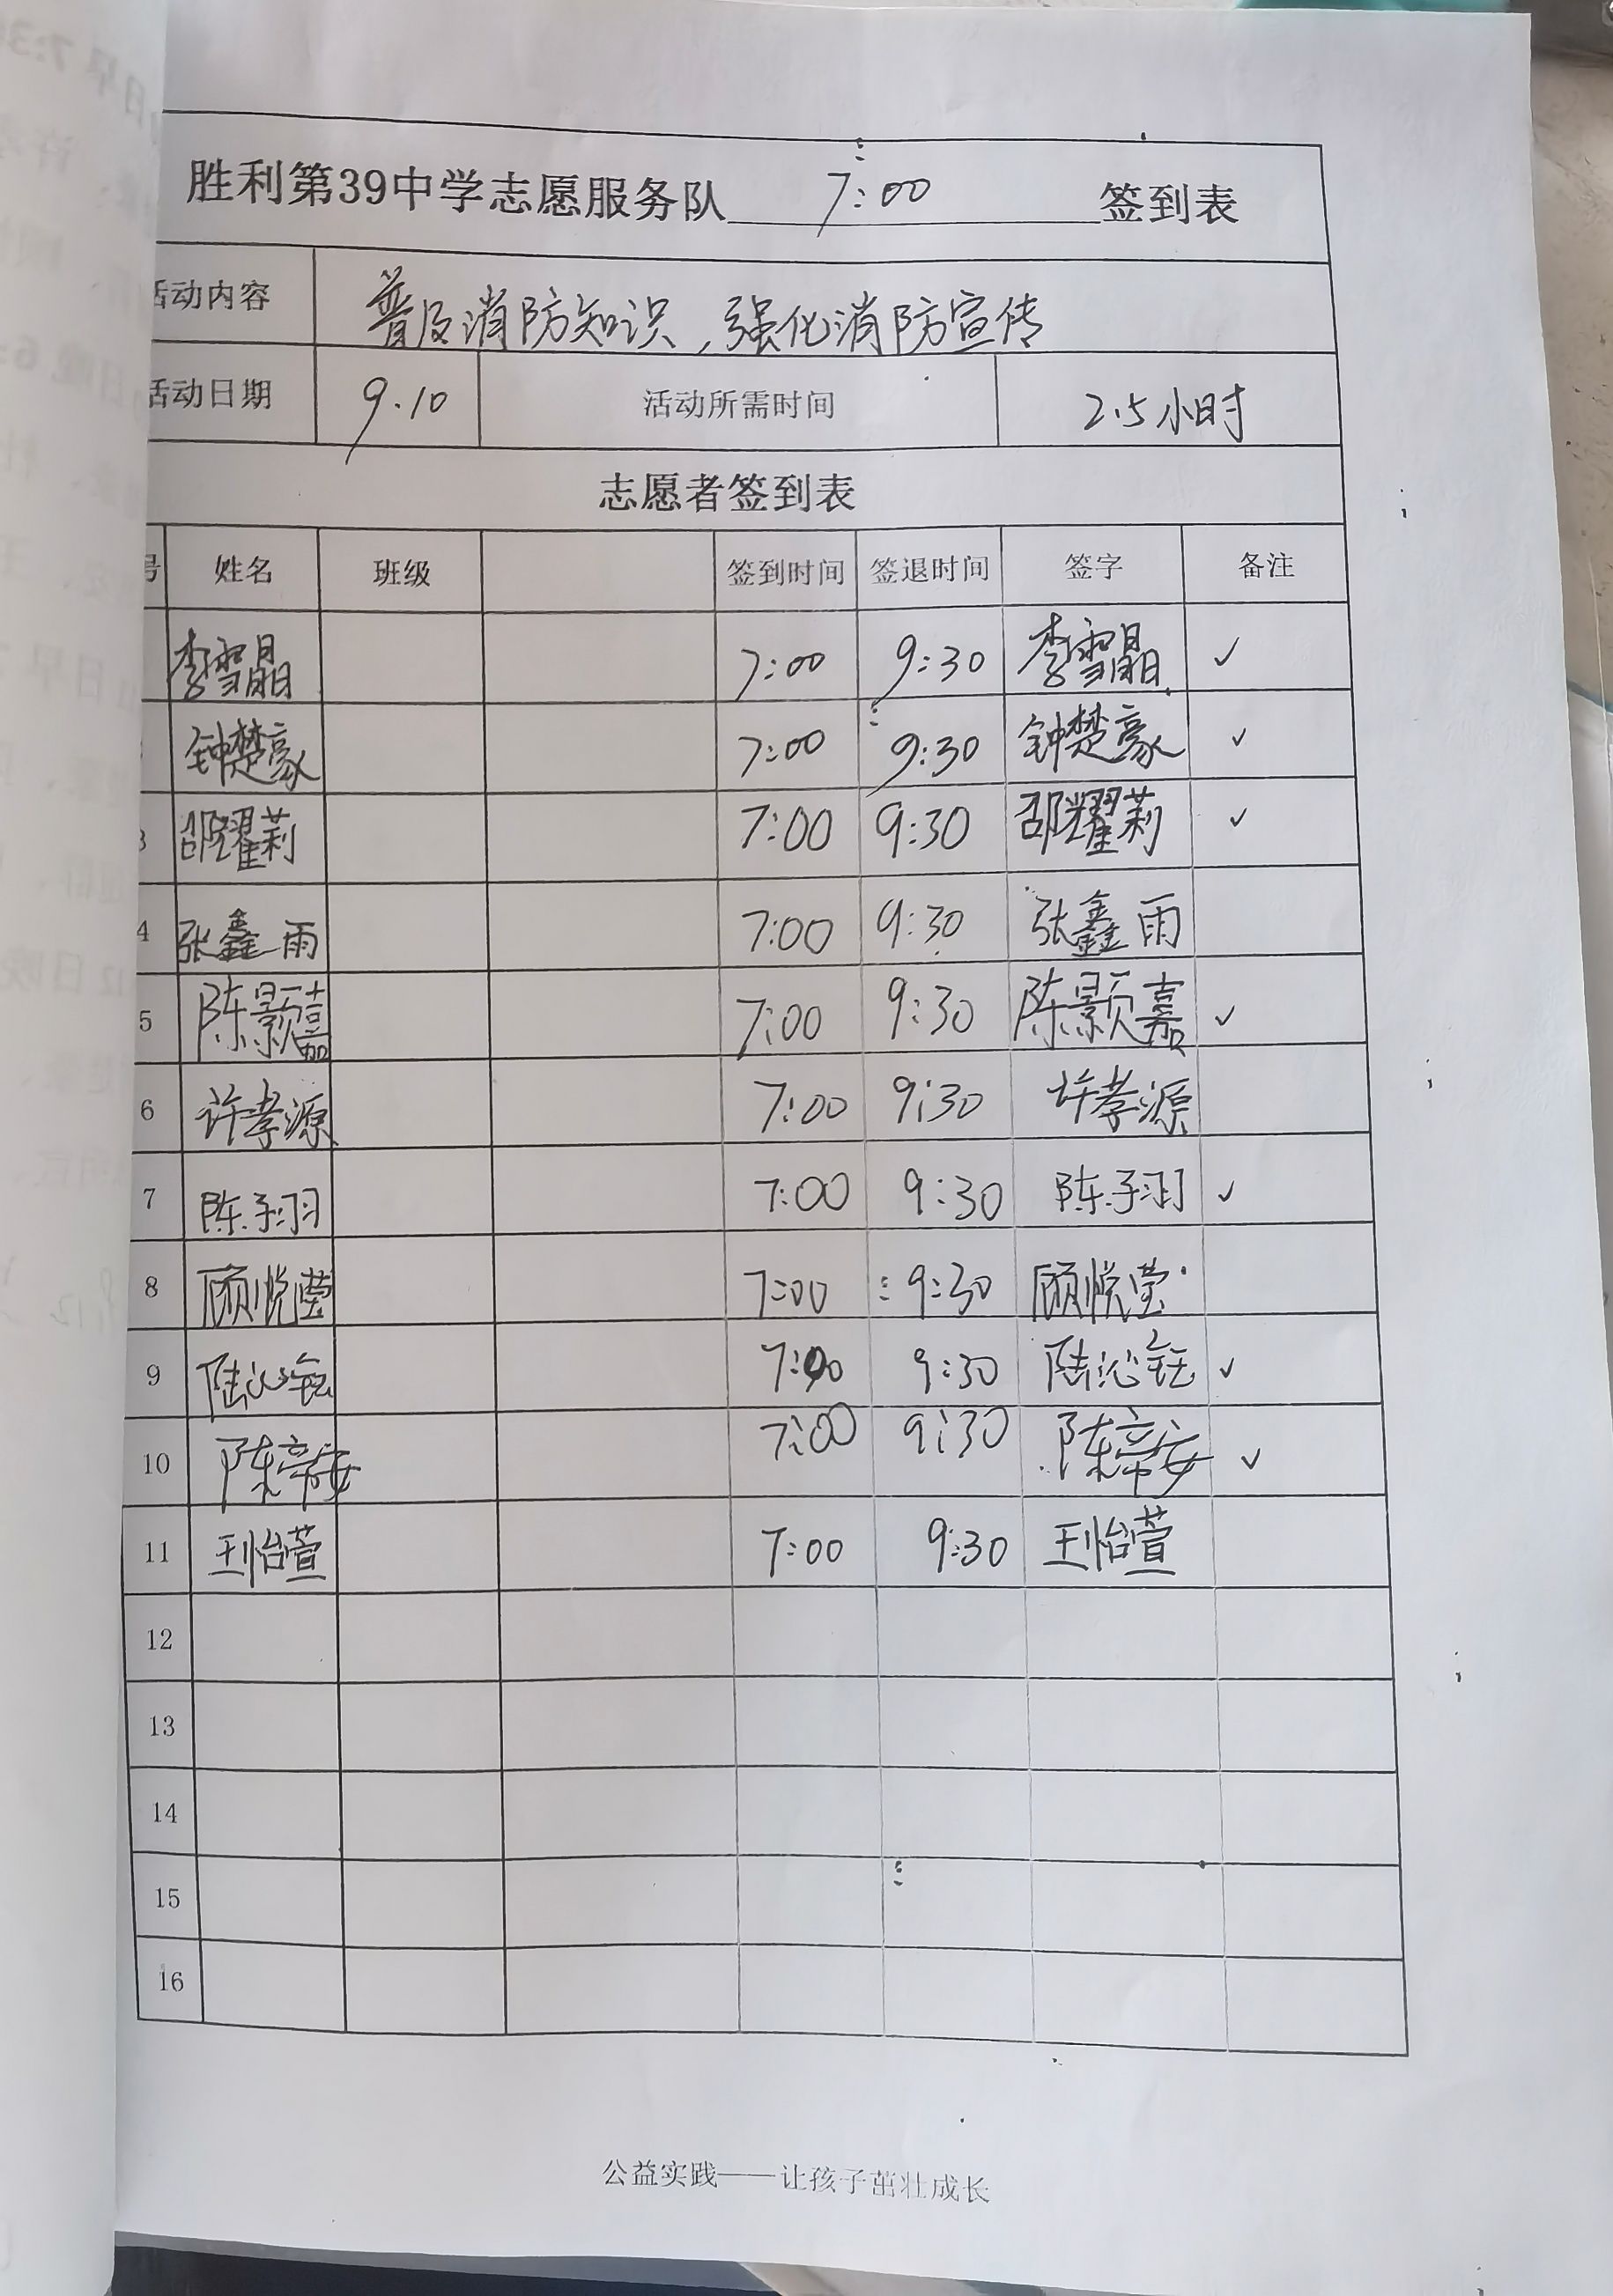 胜利第39中学志愿服务队 7:00 签到表
活动内容 普及消防知识，强化消防宣传
活动日期 9.10 活动所需时间 2.5小时
志愿者签到表
号 姓名 班级 签到时间 签退时间 签字 备注
李雪晶 7:00 9:30 李雪晶 ✓
钟楚豪 7:00 9:30 钟楚豪 ✓
3 邵耀莉 7:00 9:30 邵耀莉 ✓
4 张鑫雨 7:00 9:30 张鑫雨
5 陈颢嘉 7:00 9:30 陈颢嘉 ✓
6 许孝源 7:00 9:30 许孝源
7 陈子羽 7:00 9:30 陈子羽 ✓
8 顾悦莹 7:00 9:30 顾悦莹
9 陆沁钰 7:00 9:30 陆沁钰 ✓
10 陈帝安 7:00 9:30 陈帝安 ✓
11 王怡萱 7:00 9:30 王怡萱
12
13
14
15
16
公益实践——让孩子茁壮成长